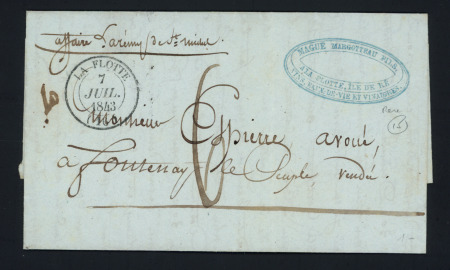 affaire
LA-FLOTTE
7
JUIL.
1843
MAGUÉ MARGOTTEAU FILS
A LA FLOTTE, ILE DE RÉ
VINS, EAUX-DE-VIE ET VINAIGRES
15
Monsieur avoué,
a fontenay le Peuple vendée.
6